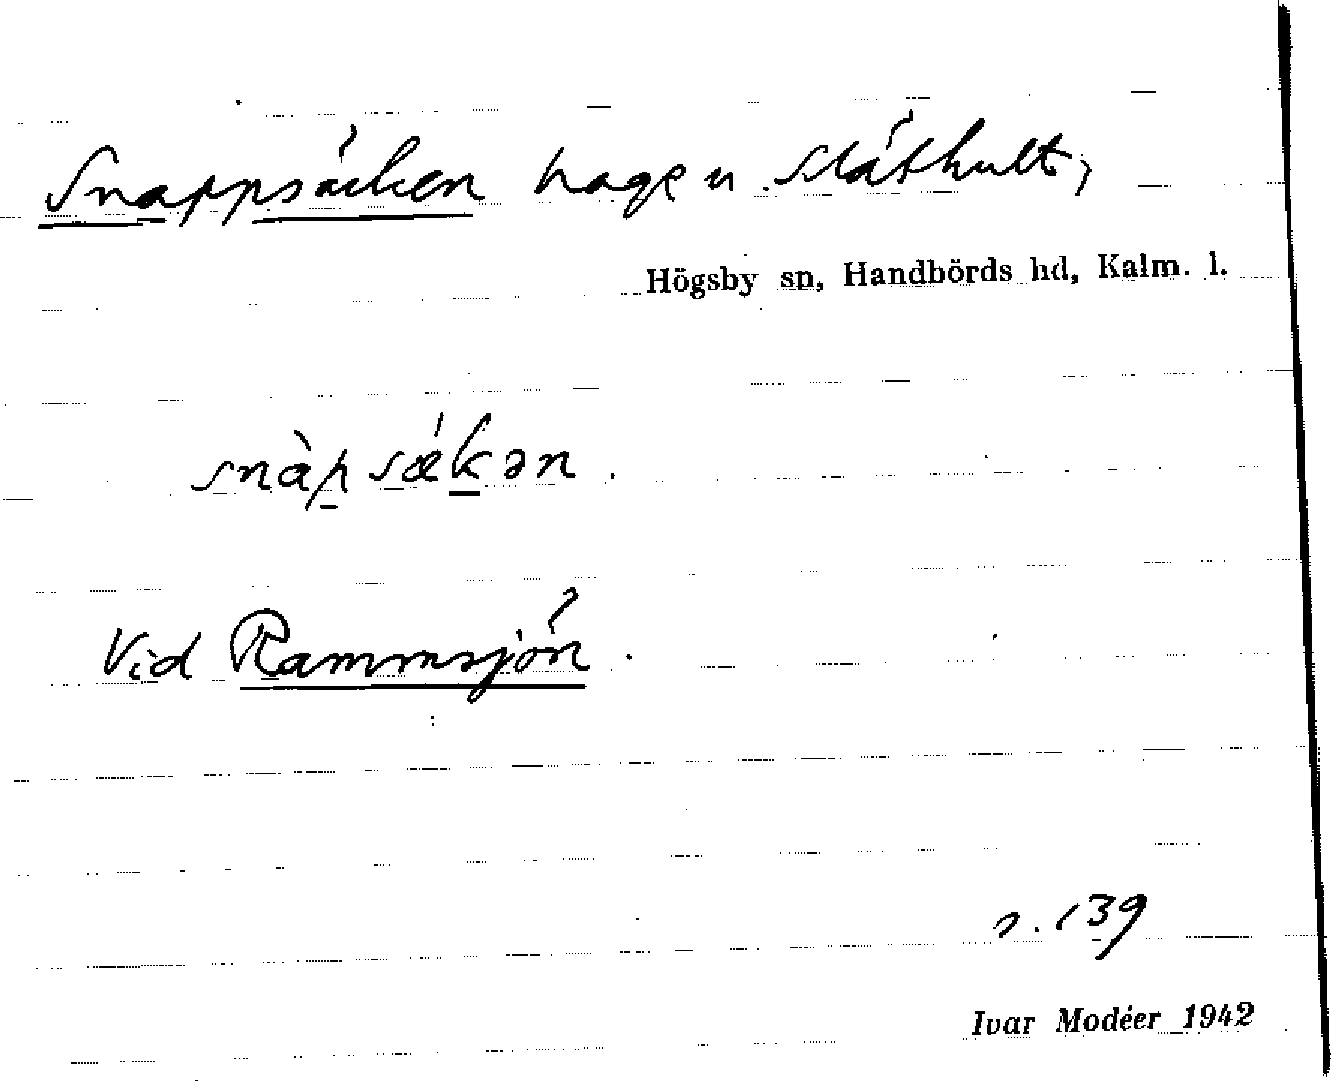 Snappsäcken hage u. Slåthult,
Högsby sn, Handbörds hd, Kalm. l.
snàp sǽkən.
Vid Rammsjön.
s. 139
Ivar Modéer 1942